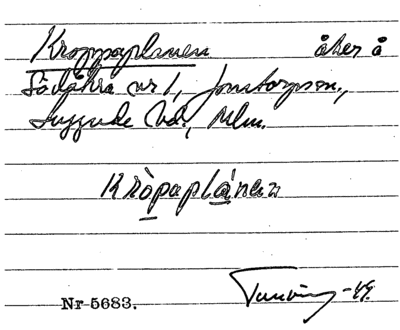 Kroppaplanen åker å
Södåkra nr 1, Jonstorpssn.,
Luggude hd., Mlm.
Kròpaplánen
Nr 5683. -49.